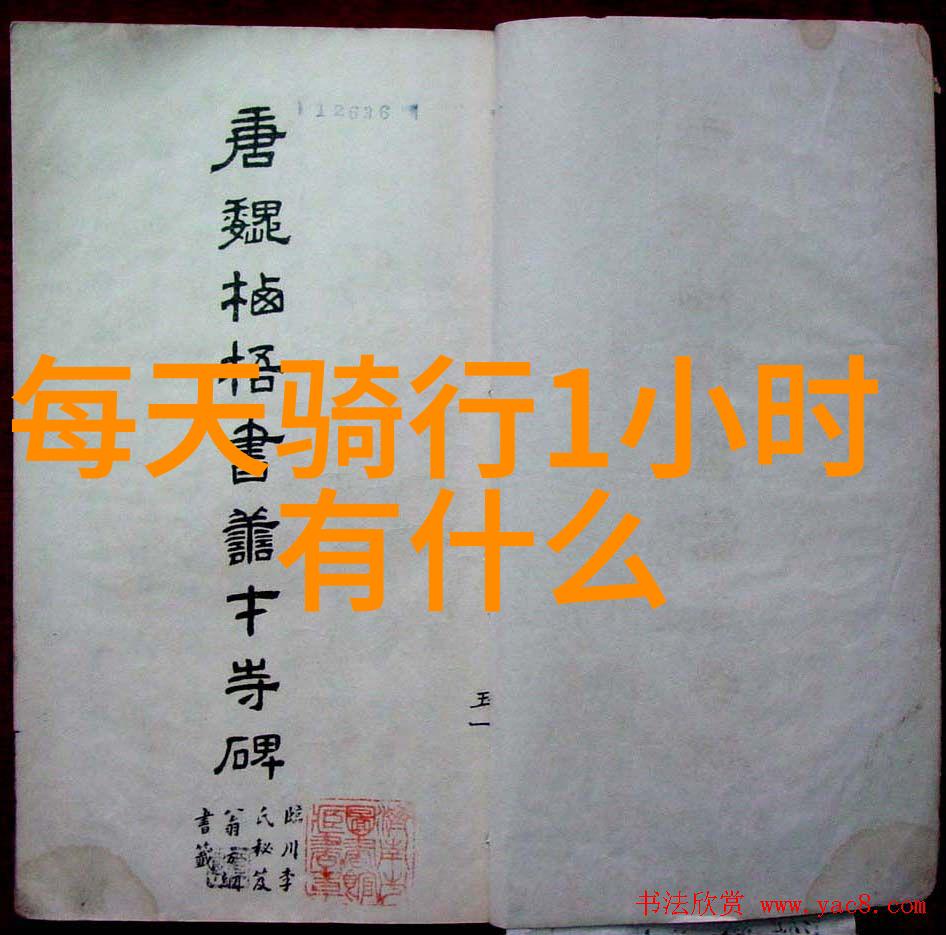 12636
唐魏栖梧書善才寺碑
臨川李
氏秘笈
翁方綱
書籤
每天骑行1小时
有什么
五一
书法欣赏 www.yac8.com